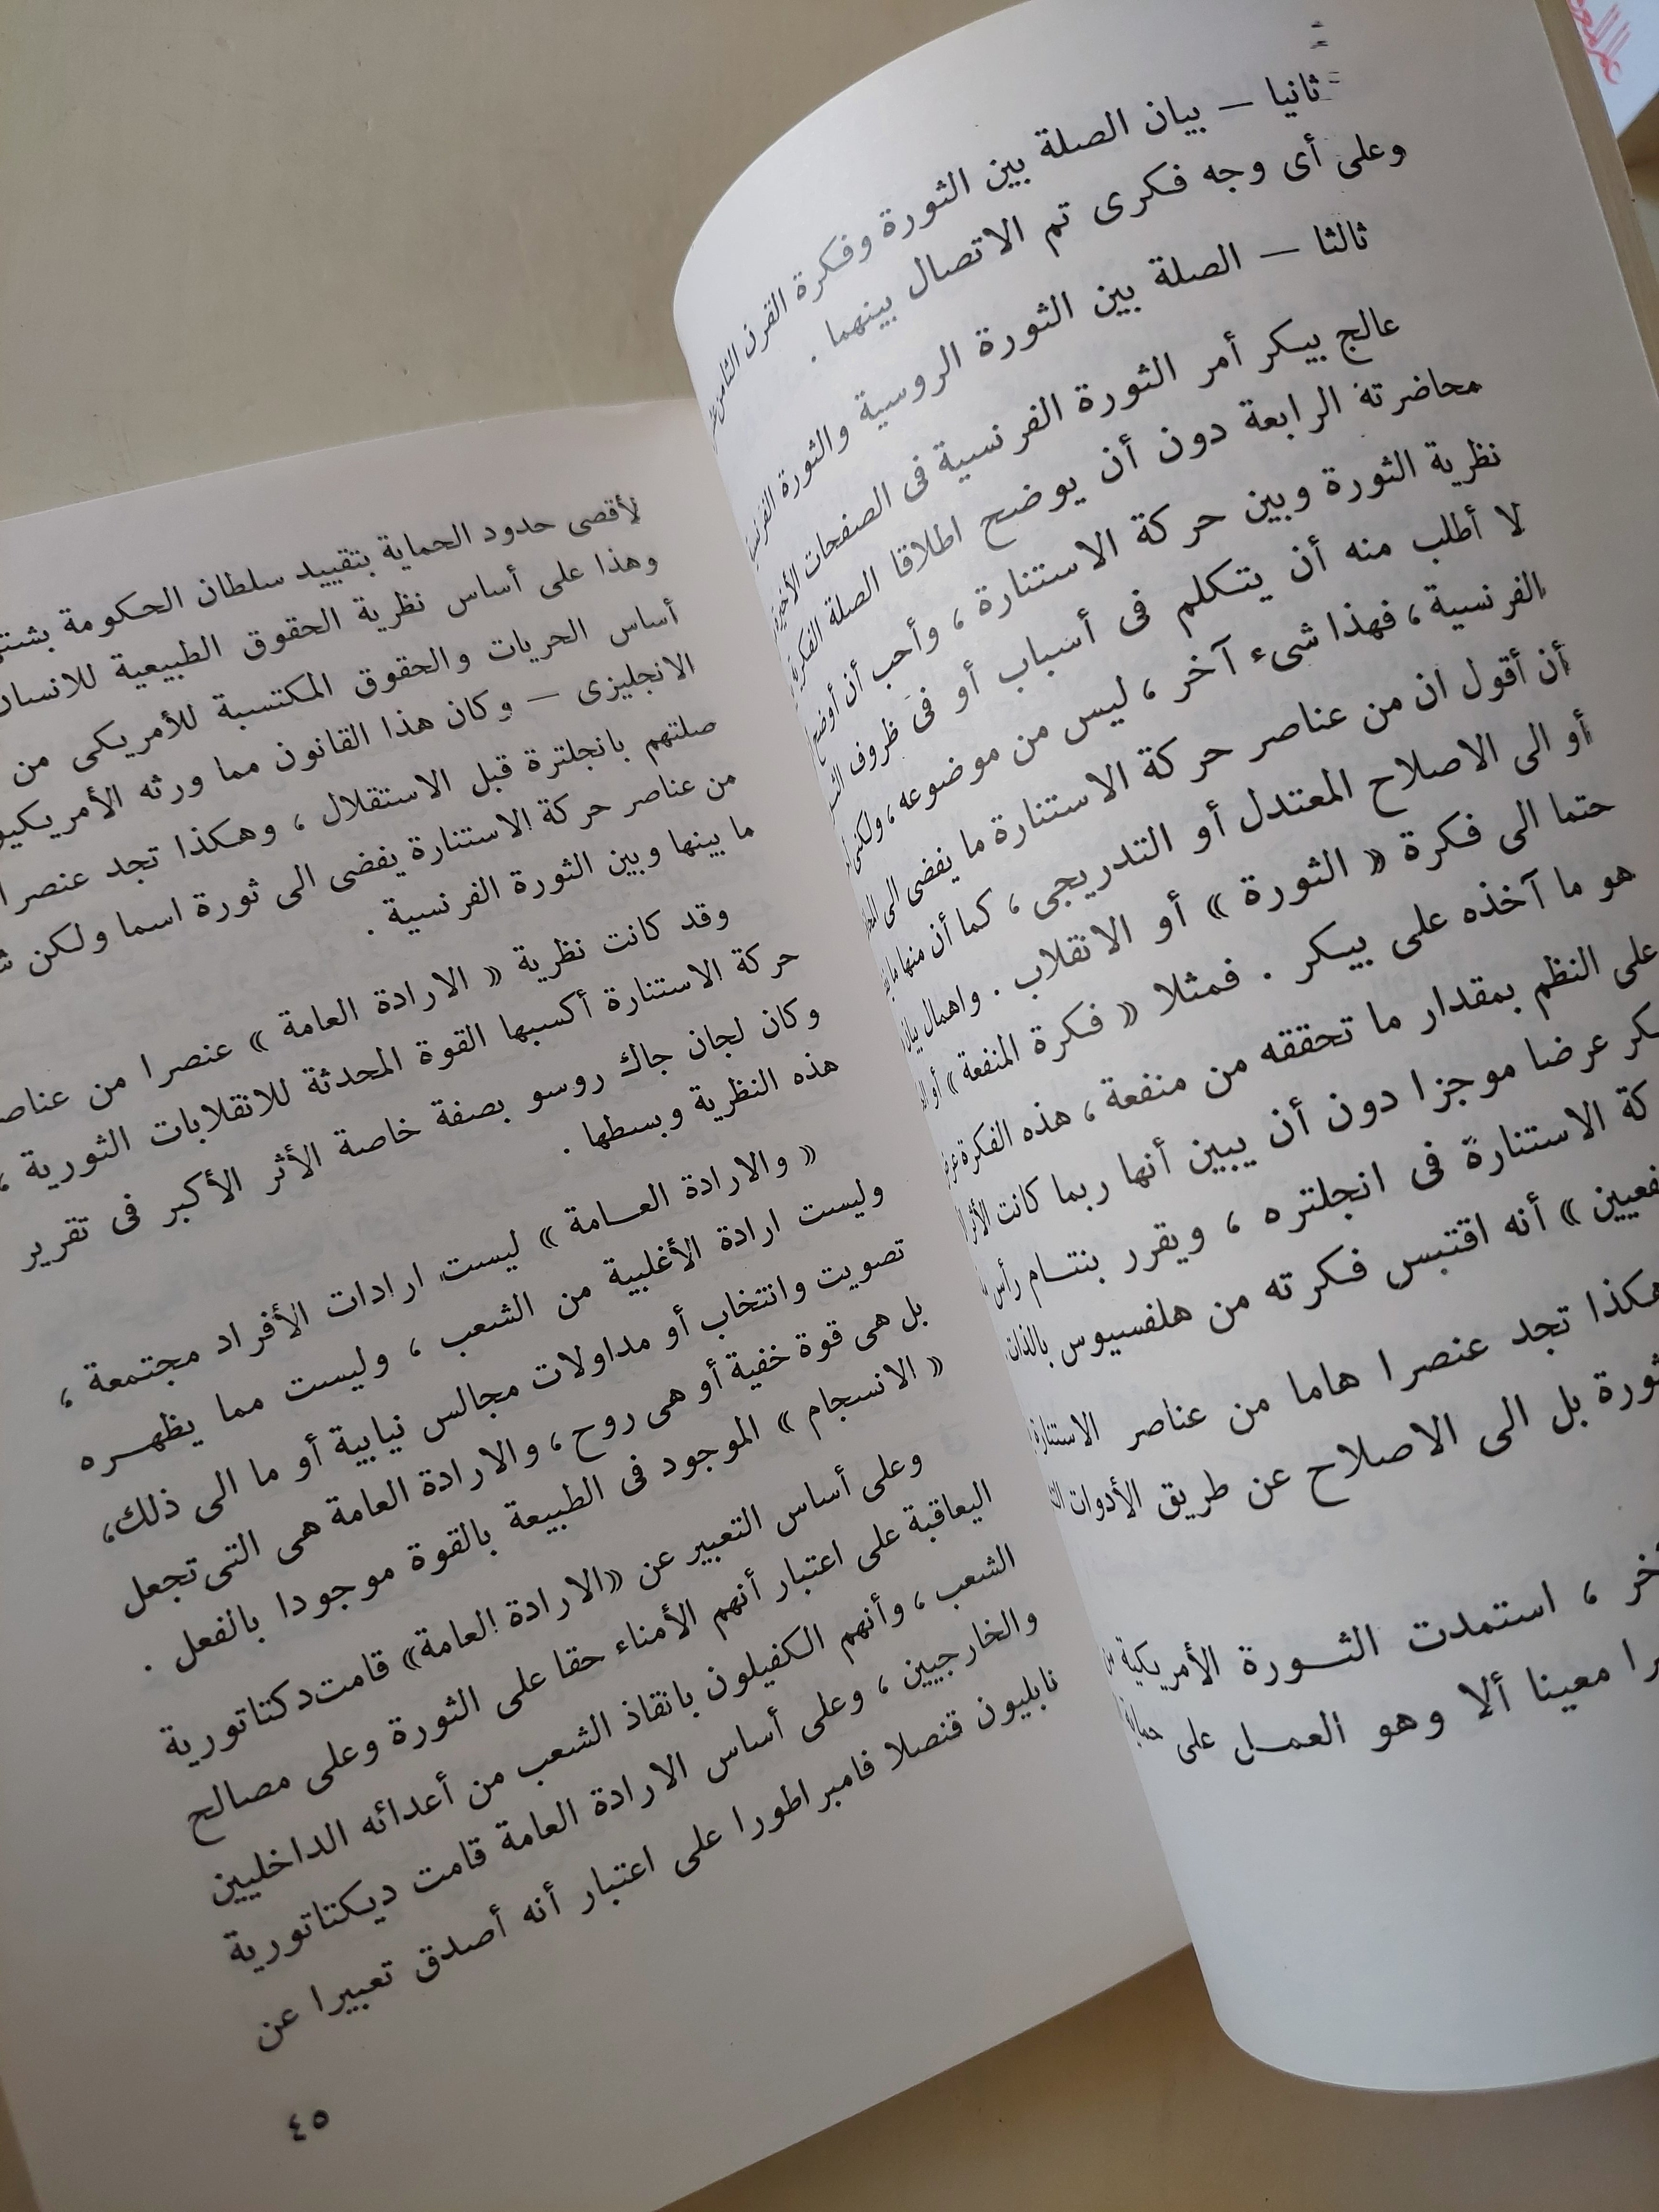 ثانيا — بيان الصلة بين الثورة وفكرة القرن الثامن
وعلى أى وجه فكرى تم الاتصال بينهما .
ثالثا — الصلة بين الثورة الروسية والثورة
عالج بيكر أمر الثورة الفرنسية فى الصفحات
محاضرته الرابعة دون أن يوضح اطلاقا الصلة
نظرية الثورة وبين حركة الاستنارة ، وأحب أن
لا أطلب منه أن يتكلم فى أسباب أو فى ظروف
الفرنسية ، فهذا شىء آخر ، ليس من موضوعه ،
أن أقول ان من عناصر حركة الاستنارة ما يفضى الى
أو الى الاصلاح المعتدل أو التدريجى ، كما أن منها
حتما الى فكرة « الثورة » أو الانقلاب . واهمال
هو ما آخذه على بيكر . فمثلا « فكرة المنفعة » أو
على النظم بمقدار ما تحققه من منفعة ، هذه الفكرة
عرضا موجزا دون أن يبين أنها ربما كانت
الاستنارة فى انجلتره ، ويقرر بنتام رأس
» أنه اقتبس فكرته من هلفسيوس بالذات
تجد عنصرا هاما من عناصر الاستنارة
بل الى الاصلاح عن طريق الأدوات
، استمدت الثورة الأمريكية
معينا ألا وهو العمل على
لأقصى حدود الحماية بتقييد سلطان الحكومة
وهذا على أساس نظرية الحقوق الطبيعية
أساس الحريات والحقوق المكتسبة للأمريكى من
الانجليزى — وكان هذا القانون مما ورثه
صلتهم بانجلترة قبل الاستقلال ، وهكذا تجد
من عناصر حركة الاستنارة يفضى الى ثورة اسما ولكن
ما بينها وبين الثورة الفرنسية .
وقد كانت نظرية « الارادة العامة » عنصرا من
حركة الاستنارة أكسبها القوة المحدثة للانقلابات الثورية ،
وكان لجان جاك روسو بصفة خاصة الأثر الأكبر فى تقرير
هذه النظرية وبسطها .
« والارادة العـامة » ليست ارادات الأفراد مجتمعة ،
وليست ارادة الأغلبية من الشعب ، وليست مما يظهره
تصويت وانتخاب أو مداولات مجالس نيابية أو ما الى ذلك،
بل هى قوة خفية أو هى روح ، والارادة العامة هى التى تجعل
« الانسجام » الموجود فى الطبيعة بالقوة موجودا بالفعل .
وعلى أساس التعبير عن «الارادة العامة» قامت دكتاتورية
اليعاقبة على اعتبار أنهم الأمناء حقا على الثورة وعلى مصالح
الشعب ، وأنهم الكفيلون بانقاذ الشعب من أعدائه الداخليين
والخارجيين ، وعلى أساس الارادة العامة قامت ديكتاتورية
نابليون قنصلا فامبراطورا على اعتبار أنه أصدق تعبيرا عن
٤٥